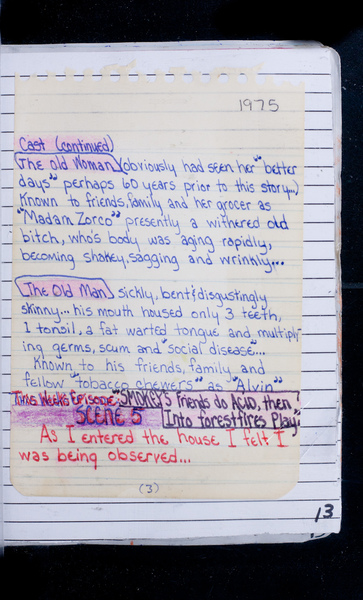 1975
Cast (continued)
The Old Woman (obviously had seen her "better
days" perhaps 60 years prior to this story...)
Known to friends, family and her grocer as
"Madam Zorco" presently a withered old
bitch, who's body was aging rapidly,
becoming shakey, sagging and wrinkly...
The Old Man, sickly, bent & disgustingly
skinny... his mouth housed only 3 teeth,
1 tonsil, a fat warted tongue and multiply-
ing germs, scum and "social disease"...
Known to his friends, family and
fellow "tobacco chewers" as "Alvin"
This Weeks Episode "SMOKEY'S friends do ACID, then
SCENE 5 Into forestfires Play"
As I entered the house I felt I
was being observed...
(3)
13